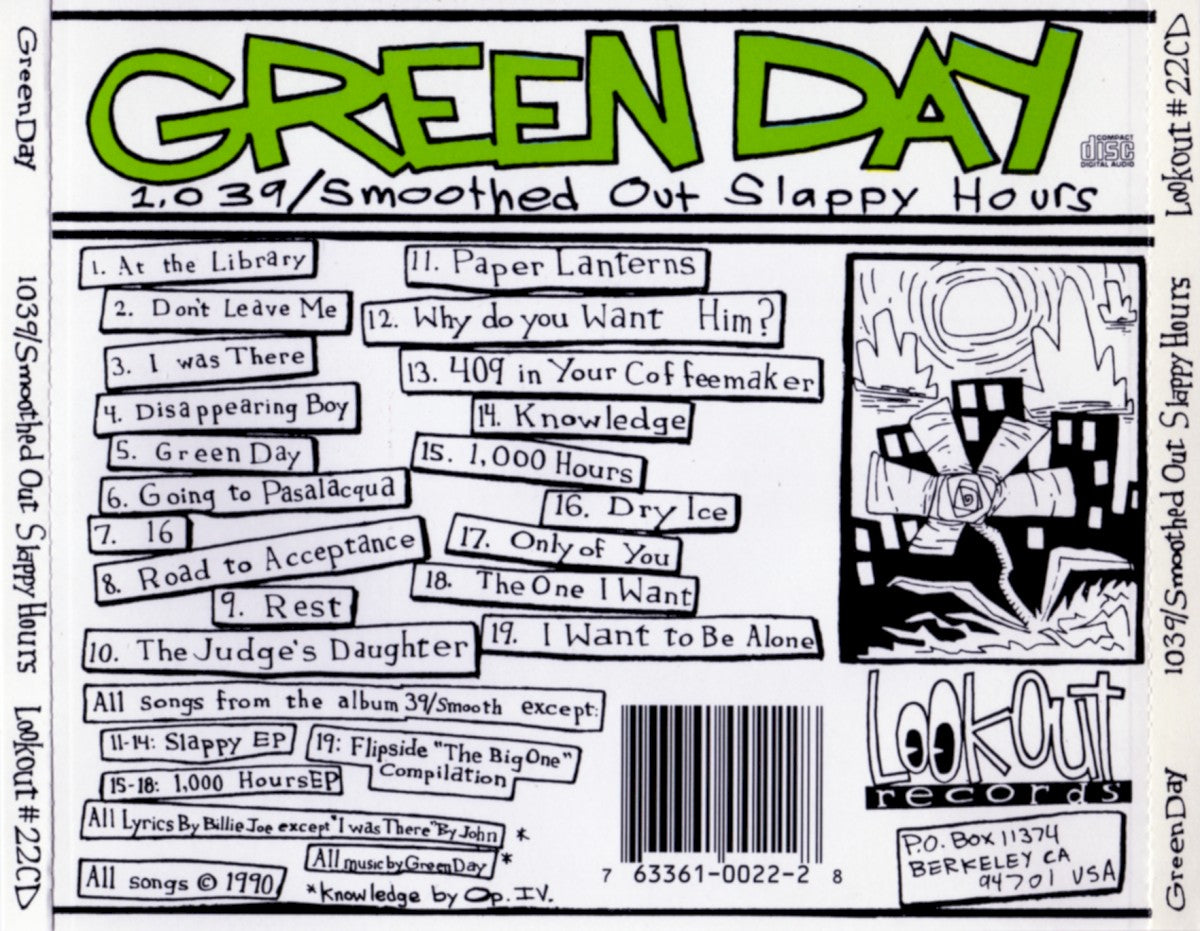 GREEN DAY
COMPACT
disc
DIGITAL AUDIO
1,039/Smoothed Out Slappy Hours
1. At the Library
2. Don't Leave Me
3. I was There
4. Disappearing Boy
5. Green Day
6. Going to Pasalacqua
7. 16
8. Road to Acceptance
9. Rest
10. The Judge's Daughter
11. Paper Lanterns
12. Why do you Want Him?
13. 409 in Your Coffeemaker
14. Knowledge
15. 1,000 Hours
16. Dry Ice
17. Only of You
18. The One I Want
19. I Want to Be Alone
All songs from the album 39/Smooth except:
11-14: Slappy EP
19: Flipside "The Big One"
Compilation
15-18: 1,000 Hours EP
All Lyrics By Billie Joe except "I was There" By John *
All music by Green Day *
All songs © 1990
*Knowledge by Op. IV.
7 63361-0022-2 8
Lookout
records
P.O. Box 11374
BERKELEY CA
94701 USA
Green Day 1039/Smoothed Out Slappy Hours Lookout #22CD
Green Day 1039/Smoothed Out Slappy Hours Lookout #22CD